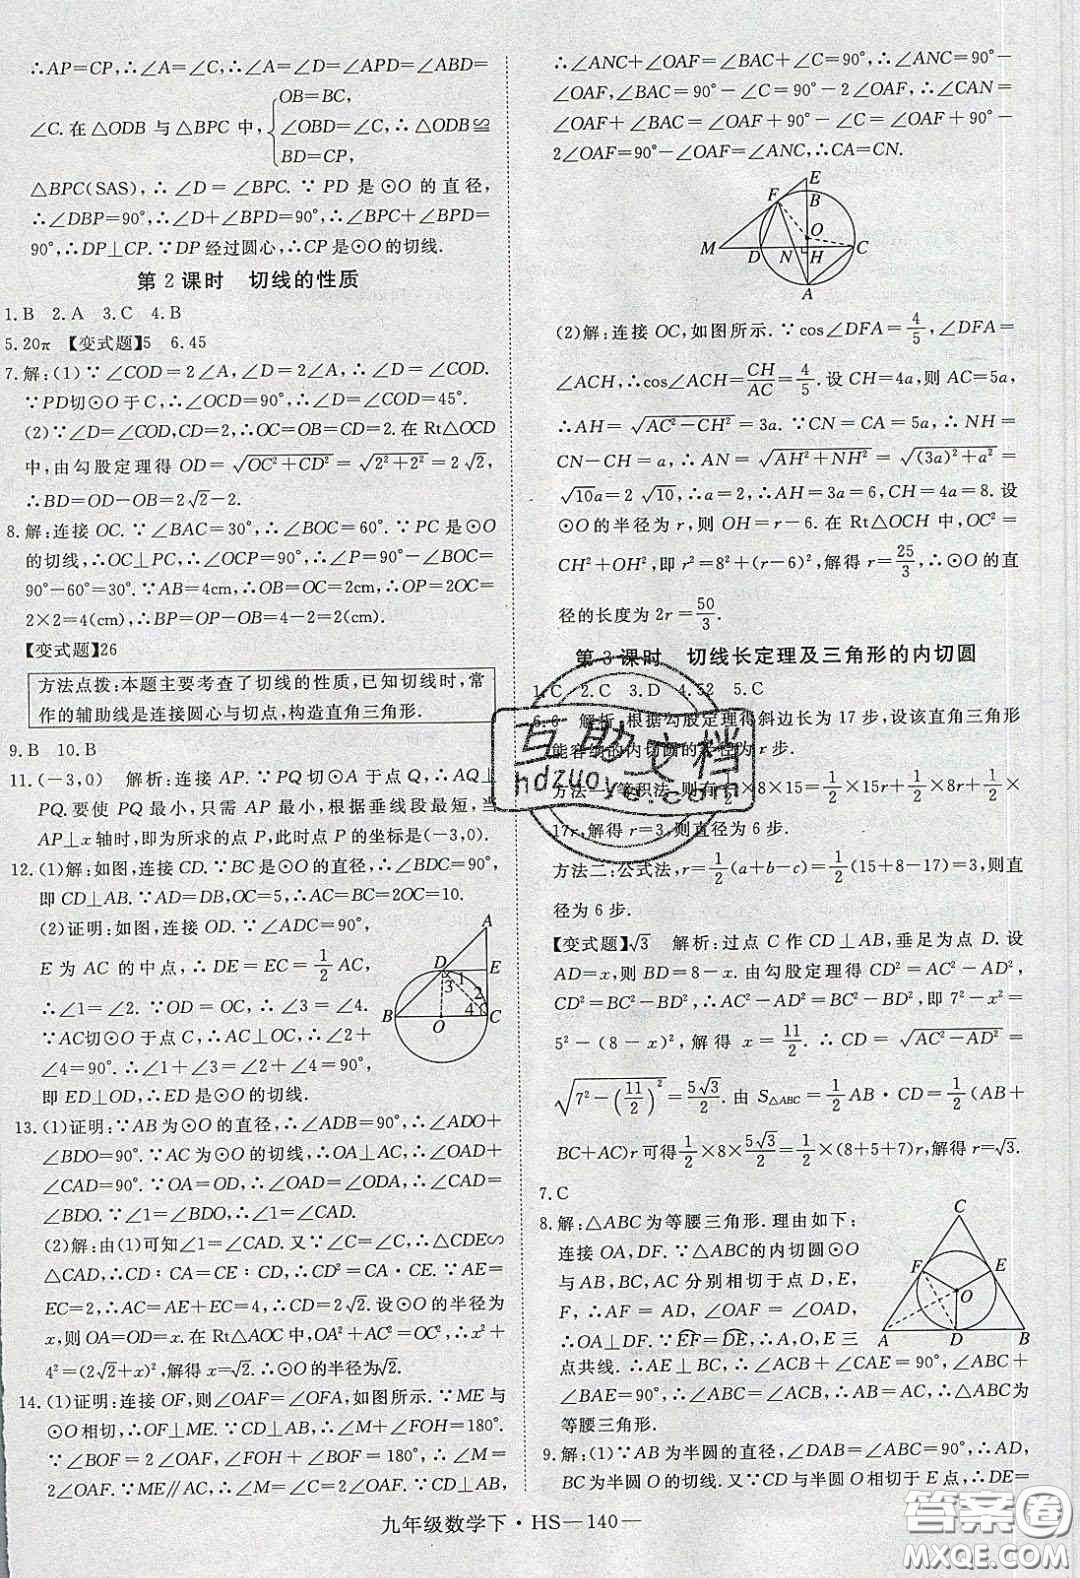 ∴AP=CP,∴∠A=∠C,∴∠A=∠D=∠APD=∠ABD=
∠C.在△ODB 与△BPC 中,{OB=BC, ∠OBD=∠C, BD=CP, ∴△ODB≌
△BPC(SAS),∴∠D=∠BPC.∵PD 是⊙O 的直径,
∴∠DBP=90°,∴∠D+∠BPD=90°,∴∠BPC+∠BPD=
90°,∴DP⊥CP.∵DP 经过圆心,∴CP 是⊙O 的切线.
第 2 课时 切线的性质
1.B 2.A 3.C 4.B
5.20π 【变式题】5 6.45
7.解:(1)∵∠COD=2∠A,∠D=2∠A,∴∠D=∠COD.
∵PD切⊙O 于 C,∴∠OCD=90°,∴∠D=∠COD=45°.
(2)∵∠D=∠COD,CD=2,∴OC=OB=CD=2.在 Rt△OCD
中,由勾股定理得 OD=√(OC²+CD²)=√(2²+2²)=2√2,
∴BD=OD-OB=2√2-2.
8.解:连接 OC.∵∠BAC=30°,∴∠BOC=60°.∵PC 是⊙O
的切线,∴OC⊥PC,∴∠OCP=90°,∴∠P=90°-∠BOC=
90°-60°=30°.∵AB=4cm,∴OB=OC=2cm,∴OP=2OC=
2×2=4(cm),∴BP=OP-OB=4-2=2(cm).
【变式题】26
方法点拨:本题主要考查了切线的性质,已知切线时,常
作的辅助线是连接圆心与切点,构造直角三角形.
9.B 10.B
11.(-3,0) 解析:连接 AP.∵PQ切⊙A 于点 Q,∴AQ⊥
PQ.要使 PQ 最小,只需 AP 最小,根据垂线段最短,当
AP⊥x 轴时,即为所求的点 P,此时点 P 的坐标是(-3,0).
12.(1)解:如图,连接 CD.∵BC是⊙O 的直径,∴∠BDC=90°,
即 CD⊥AB.∵AD=DB,OC=5,∴AC=BC=2OC=10.
(2)证明:如图,连接 OD.∵∠ADC=90°,
E 为 AC 的中点,∴DE=EC=1/2 AC,
∴∠1=∠2.∵OD=OC,∴∠3=∠4.
∵AC切⊙O 于点 C,∴AC⊥OC,∴∠2+
∠4=90°,∴∠1+∠3=∠2+∠4=90°,
即 ED⊥OD,∴ED是⊙O 的切线.
A
D
1
E
3
2
4
B
O
C
13.(1)证明:∵AB为⊙O 的直径,∴∠ADB=90°,∴∠ADO+
∠BDO=90°.∵AC为⊙O的切线,∴OA⊥AC,∴∠OAD+
∠CAD=90°.∵OA=OD,∴∠OAD=∠ODA,∴∠CAD=
∠BDO.∵∠1=∠BDO,∴∠1=∠CAD.
(2)解:由(1)可知∠1=∠CAD.又∵∠C=∠C,∴△CDE∽
△CAD,∴CD∶CA=CE∶CD,∴CD²=CA·CE.∵AE=
EC=2,∴AC=AE+EC=4,∴CD=2√2.设⊙O 的半径为
x,则 OA=OD=x.在 Rt△AOC 中,OA²+AC²=OC²,∴x²+
4²=(2√2+x)²,解得 x=√2.∴⊙O 的半径为√2.
14.(1)证明:连接 OF,则∠OAF=∠OFA,如图所示.∵ME与
⊙O 相切,∴OF⊥ME.∵CD⊥AB,∴∠M+∠FOH=180°.
∵∠BOF=2∠OAF,∠FOH+∠BOF=180°,∴∠M=
2∠OAF.∵ME∥AC,∴∠M=∠C=2∠OAF.∵CD⊥AB,
∴∠ANC+∠OAF=∠BAC+∠C=90°,∴∠ANC=90°-
∠OAF,∠BAC=90°-∠C=90°-2∠OAF,∴∠CAN=
∠OAF+∠BAC=∠OAF+90°-2∠OAF=90°-
∠OAF=∠ANC,∴CA=CN.
E
F
B
O
M
D
N
H
C
A
(2)解:连接 OC,如图所示.∵cos∠DFA=4/5,∠DFA=
∠ACH,∴cos∠ACH=CH/AC=4/5.设 CH=4a,则 AC=5a,
∴AH=√(AC²-CH²)=3a.∵CN=CA=5a,∴NH=
CN-CH=a,∴AN=√(AH²+NH²)=√((3a)²+a²)=
√10a=2√10,∴a=2,∴AH=3a=6,CH=4a=8.设
⊙O 的半径为 r,则 OH=r-6.在 Rt△OCH 中,OC²=
CH²+OH²,即 r²=8²+(r-6)²,解得 r=25/3,∴⊙O的直
径的长度为 2r=50/3.
第 3 课时 切线长定理及三角形的内切圆
1.C 2.C 3.D 4.52 5.C
6.6 解析:根据勾股定理得斜边长为 17 步,设该直角三角形
能容纳的内切圆的半径为 r 步.
方法一:等积法,则有1/2×8×15=1/2×15r+1/2×8r+1/2×
17r,解得 r=3,则直径为 6 步.
方法二:公式法,r=1/2(a+b-c)=1/2(15+8-17)=3,则直
径为 6 步.
【变式题】√3 解析:过点 C 作 CD⊥AB,垂足为点 D.设
AD=x,则 BD=8-x.由勾股定理得 CD²=AC²-AD²,
CD²=BC²-BD²,∴AC²-AD²=BC²-BD²,即 7²-x²=
5²-(8-x)²,解得 x=11/2.∴CD=√(AC²-AD²)=
√(7²-(11/2)²)=5√3/2.由 S△ABC=1/2 AB·CD=1/2(AB+
BC+AC)r 可得1/2×8×5√3/2=1/2×(8+5+7)r,解得 r=√3.
7.C
8.解:△ABC为等腰三角形.理由如下:
连接 OA,DF.∵△ABC的内切圆⊙O
与 AB,BC,AC 分别相切于点 D,E,
F,∴AF=AD,∠OAF=∠OAD,
∴OA⊥DF.∵EF=DE,∴A,O,E 三
点共线.∴AE⊥BC,∴∠C+∠CAE=90°,∠B+
∠BAE=90°.∵∠CAE=∠BAE,∴∠B=∠C,∴△ABC为
等腰三角形.
C
F
E
O
A
D
B
9.解:(1)∵AB为半圆的直径,∠DAB=∠ABC=90°,∴AD,
BC为半圆 O的切线.又∵CD与半圆 O相切于 E点,∴DE=
九年级数学下·HS—140—
互助文档
hdzuoye.com
答案圈
MXQE.COM